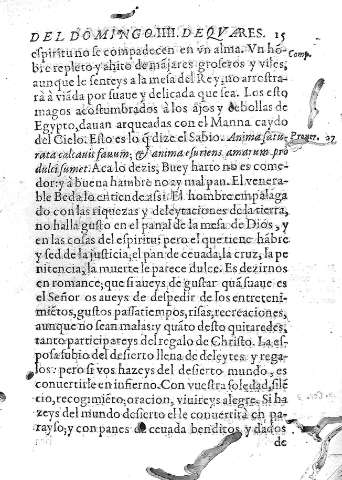 DEL DOMINGO IIII. DE QVARES. 15
espiritu no se compadecen en vn alma. Vn hõ-
bre repleto y ahito de mãjares groseros y viles, Comp.
aunque le senteys a la mesa del Rey, no arrostra
rà a viãda por suaue y delicada que sea. Los esto
magos acostumbrados à los ajos y cebollas de
Egypto, dauan arqueadas con el Manna caydo
del Cielo. Esto es lo q̃ dize el Sabio. Anima satu- Prouer. 27
rata calcauit fauum; & anima esuriens amarum pro
dulci sumet. Aca lo dezis; Buey harto no es come-
dor: y à buena hambre no ay mal pan. El venera-
ble Beda lo entiende assi. El hombre empalaga
do con las riquezas y deleytaciones de la tierra,
no halla gusto en el panal de la mesa de Dios, y
en las cosas del espiritu: pero el que tiene hãbre
y sed de la justicia, el pan de ceuada, la cruz, la pe
nitencia, la muerte le parece dulce. Es deziros
en romance; que si aueys de gustar quã suaue es
el Señor os aueys de despedir de los entreteni-
miẽtos, gustos passatiempos, risas, recreaciones,
aunque no sean malas: y quãto desto quitaredes,
tanto participareys del regalo de Christo. La es-
posa subio del desierto llena de deleytes y rega-
los: pero si vos hazeys del desierto mundo, es
conuertirle en infierno. Con vuestra soledad, silẽ
cio, recogimiẽto, oracion, viuireys alegre. Si ha
zeys del mundo desierto el le conuertirà en pa-
rayso; y con panes de ceuada benditos, y dados
de